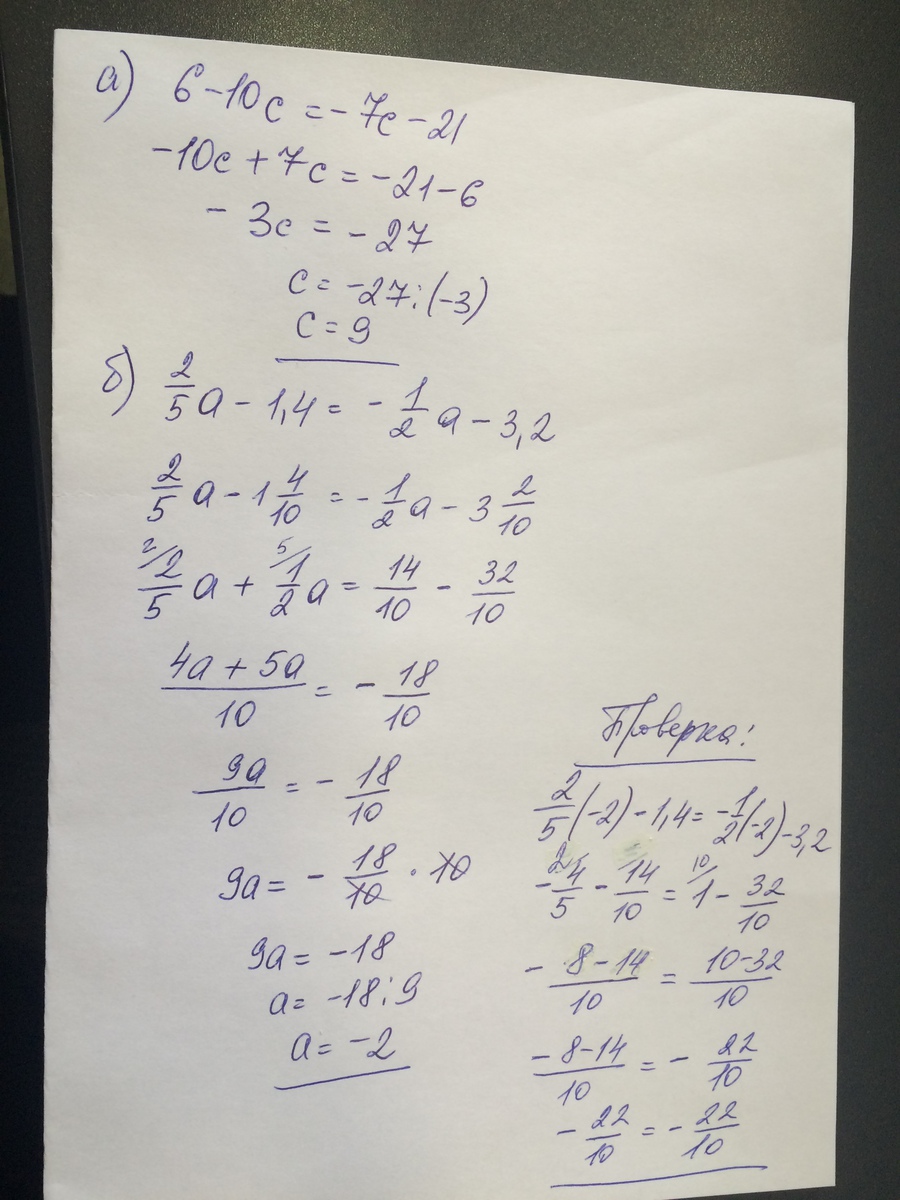 а) 6 - 10с = - 7с - 21
-10с + 7с = - 21 - 6
- 3с = - 27
с = -27 : (-3)
с = 9
б) 2/5 a - 1,4 = - 1/2 a - 3,2
2/5 a - 1 4/10 = - 1/2 a - 3 2/10
2/ 2/5 a + 5/ 1/2 a = 14/10 - 32/10
(4a + 5a)/10 = - 18/10
9a/10 = - 18/10
9a = - 18/10 · 10
9a = -18
a = -18 : 9
a = -2
Проверка:
2/5 (-2) - 1,4 = - 1/2 (-2) - 3,2
- 2/ 4/5 - 14/10 = 10/ 1 - 32/10
- (8 - 14)/10 = (10 - 32)/10
(- 8 - 14)/10 = - 22/10
- 22/10 = - 22/10